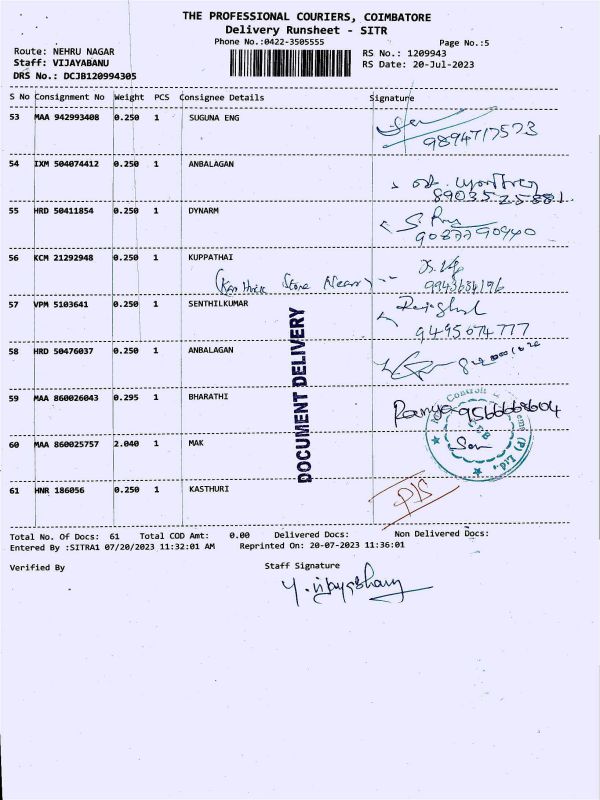 THE PROFESSIONAL COURIERS, COIMBATORE
Delivery Runsheet - SITR
Phone No.:0422-3505555 Page No.:5
Route: NEHRU NAGAR RS No.: 1209943
Staff: VIJAYABANU RS Date: 20-Jul-2023
DRS No.: DCJB120994305
S No Consignment No Weight PCS Consignee Details Signature
53 MAA 942993408 0.250 1 SUGUNA ENG
9894717573
54 IXM 504074412 0.250 1 ANBALAGAN
8903525881
55 HRD 50411854 0.250 1 DYNARM
9087790940
56 KCM 21292948 0.250 1 KUPPATHAI
Store Near)
9943684196
57 VPM 5103641 0.250 1 SENTHILKUMAR
9495674777
58 HRD 50476037 0.250 1 ANBALAGAN
59 MAA 860026043 0.295 1 BHARATHI
Ramya 9566668604
60 MAA 860025757 2.040 1 MAK
61 HNR 186056 0.250 1 KASTHURI
P/S
DOCUMENT DELIVERY
Total No. Of Docs: 61 Total COD Amt: 0.00 Delivered Docs: Non Delivered Docs:
Entered By :SITRA1 07/20/2023 11:32:01 AM Reprinted On: 20-07-2023 11:36:01
Verified By Staff Signature